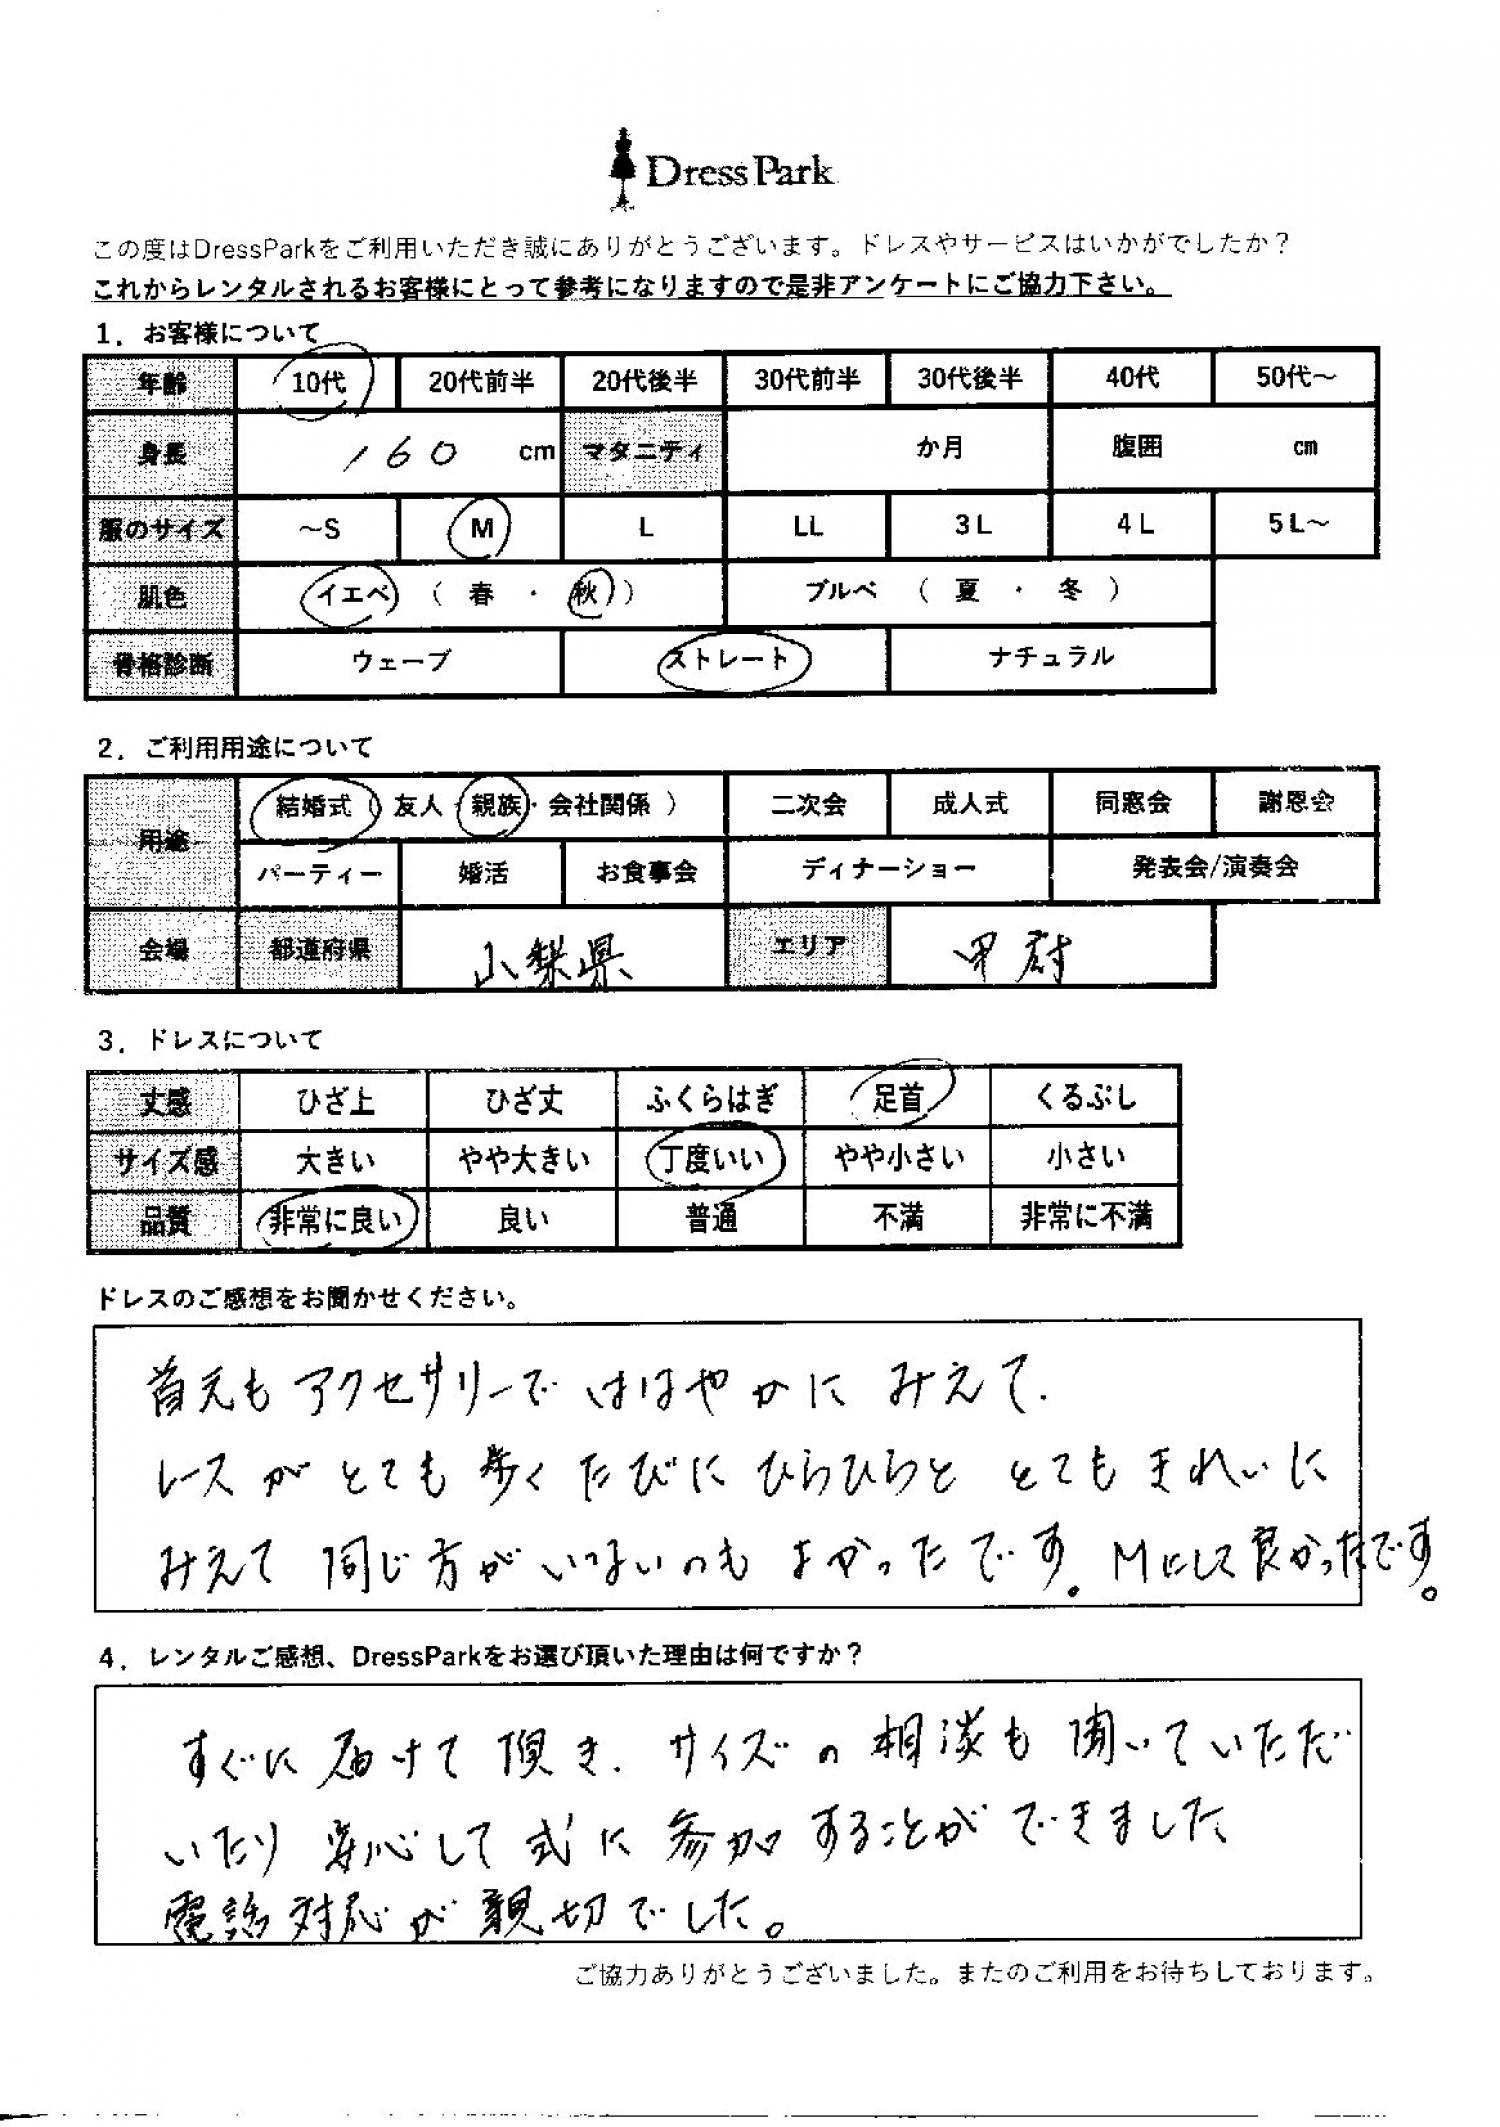 DressPark
この度はDressParkをご利用いただき誠にありがとうございます。ドレスやサービスはいかがでしたか？
これからレンタルされるお客様にとって参考になりますので是非アンケートにご協力下さい。
1．お客様について
年齢 10代 20代前半 20代後半 30代前半 30代後半 40代 50代～
身長 160 cm マタニティ か月 腹囲 cm
服のサイズ ～S M L LL 3L 4L 5L～
肌色 イエベ（ 春 ・ 秋 ） ブルベ （ 夏 ・ 冬 ）
骨格診断 ウェーブ ストレート ナチュラル
2．ご利用用途について
用途 結婚式（ 友人・親族・会社関係 ） 二次会 成人式 同窓会 謝恩会
パーティー 婚活 お食事会 ディナーショー 発表会/演奏会
会場 都道府県 山梨県 エリア 甲府
3．ドレスについて
丈感 ひざ上 ひざ丈 ふくらはぎ 足首 くるぶし
サイズ感 大きい やや大きい 丁度いい やや小さい 小さい
品質 非常に良い 良い 普通 不満 非常に不満
ドレスのご感想をお聞かせください。
首元もアクセサリーで はなやかに みえて.
レースが とても 歩く たびに ひらひらと とても きれいに
みえて 同じ方が いないのも よかったです。Mにして良かったです。
4．レンタルご感想、DressParkをお選び頂いた理由は何ですか？
すぐに 届けて 頂き. サイズの 相談も 聞いていただ
いたり 安心して 式に 参加することが できました
電話対応が 親切でした。
ご協力ありがとうございました。またのご利用をお待ちしております。